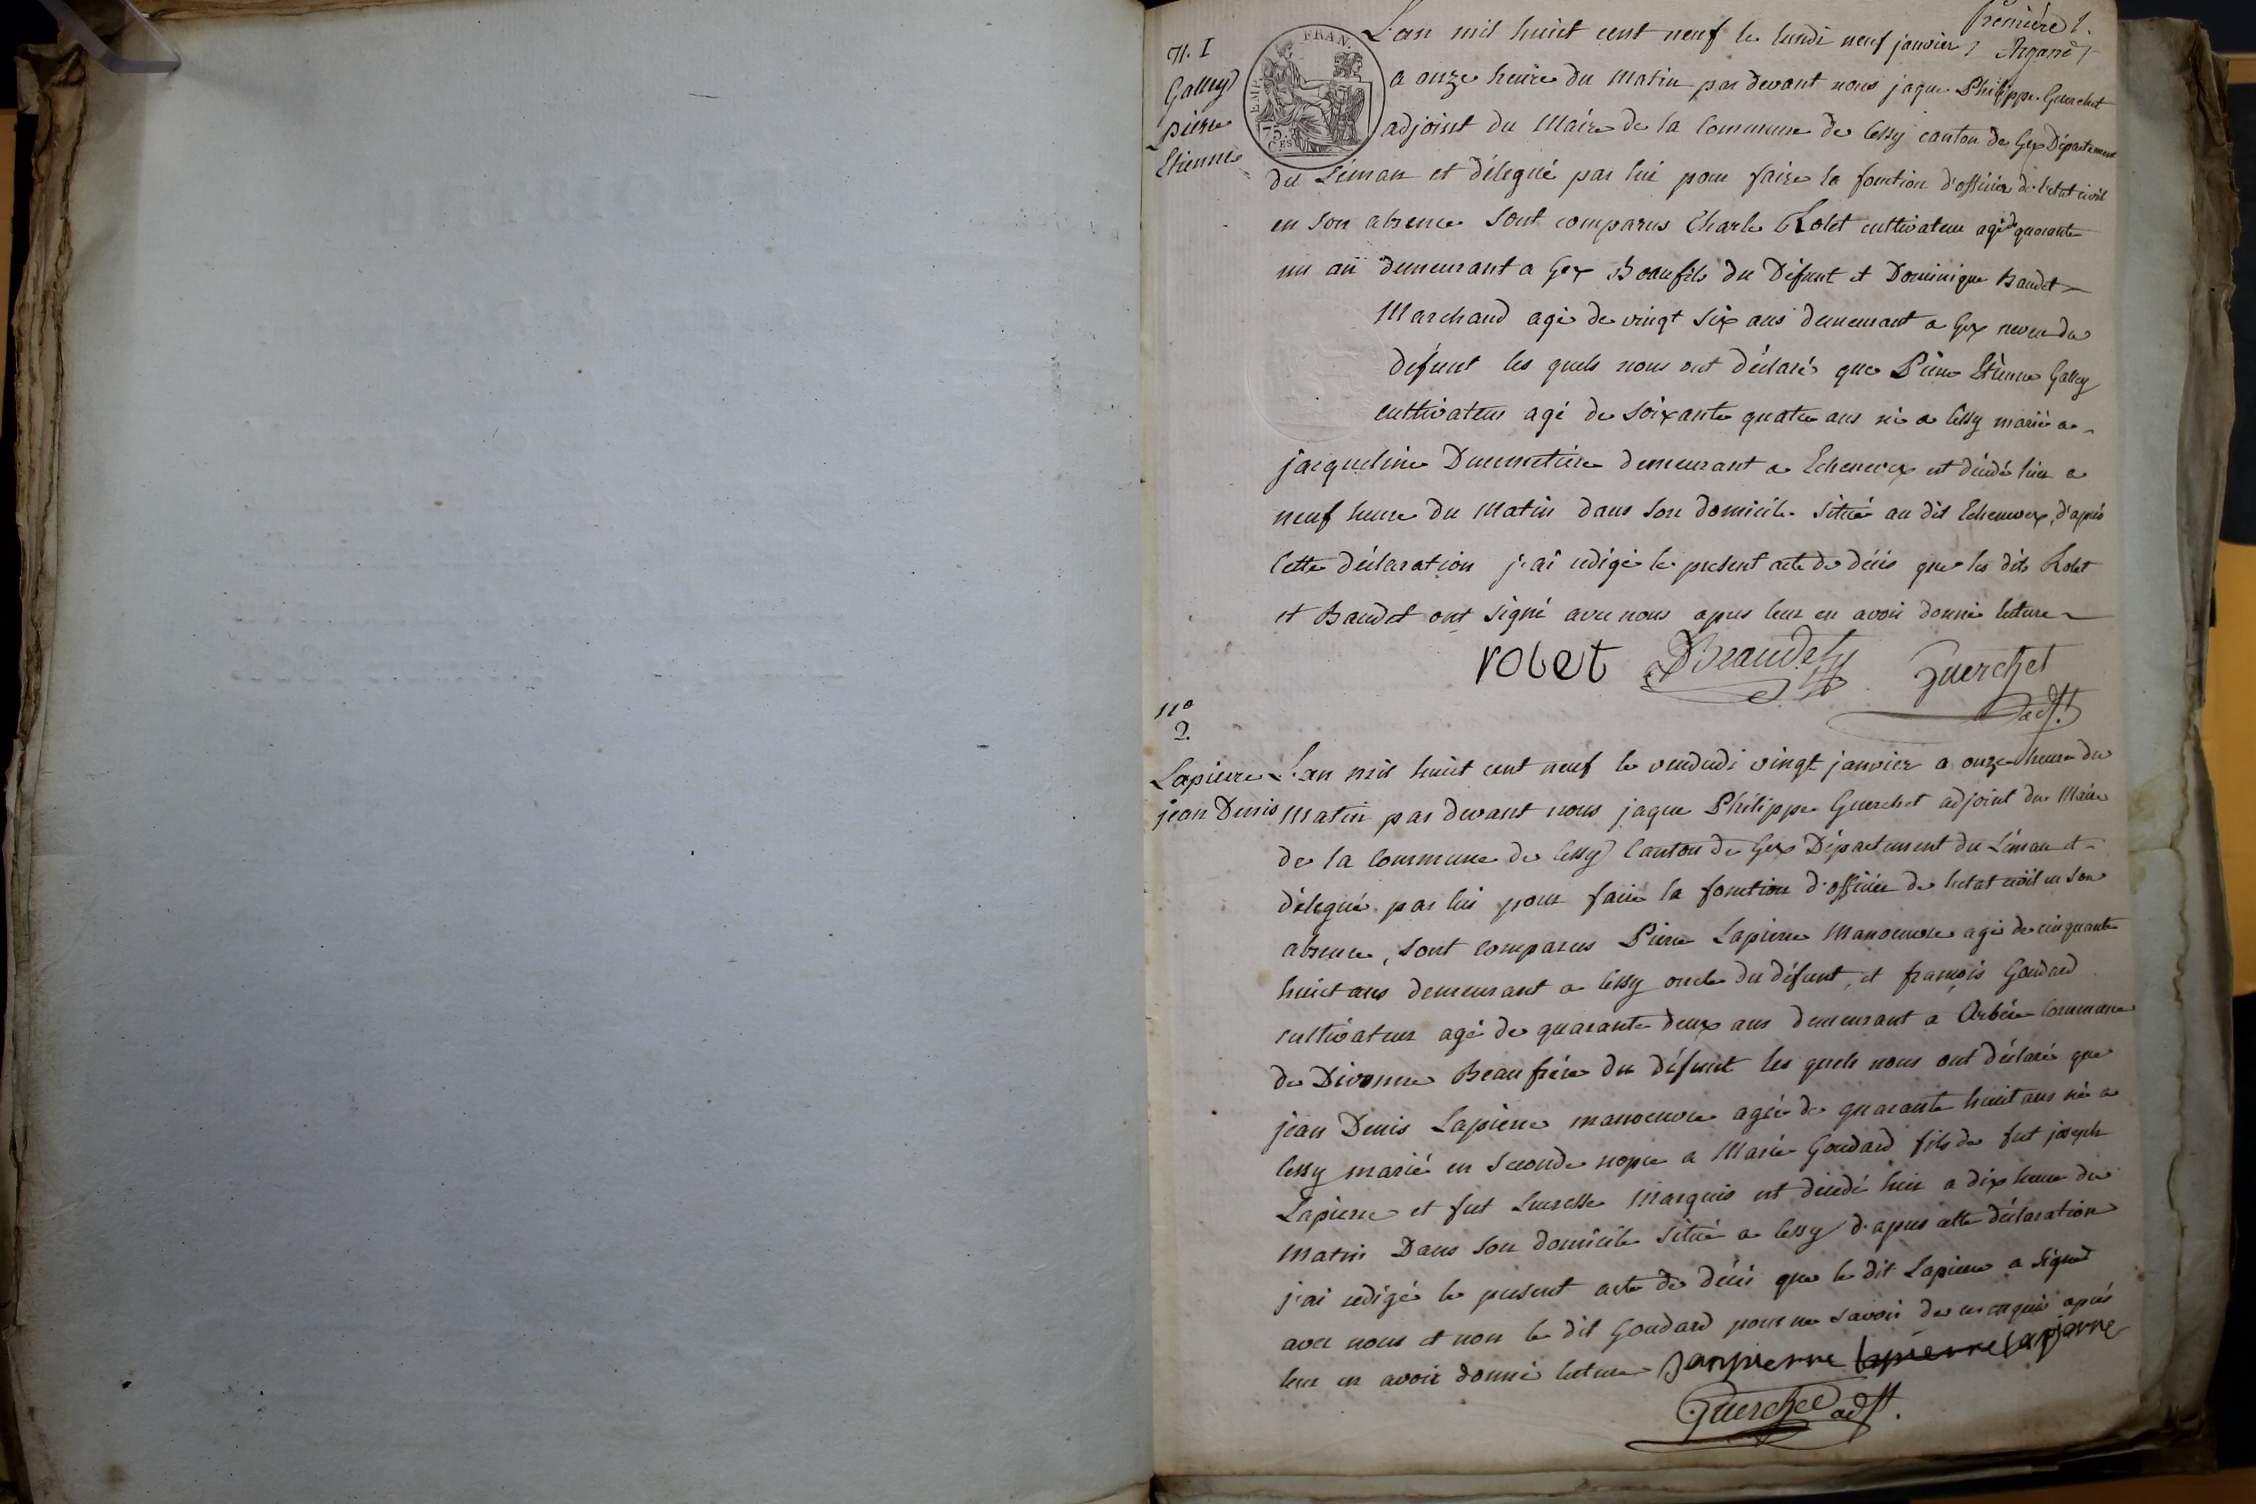 Première
n. 1
Galley
pierre
Etienne
EMP. FRAN.
75.
CES
L'an mil huict cent neuf le lundi neuf janvier
a onze heure du matin par devant nous jaque Philippe Guerchet
adjoint du Maire de la commune de Cessy canton de Gex Département
du Léman et délégué par lui pour faire la fonction d'officier de l'etat civil
en son absence sont comparus Charle Rolet cultivateur agé de quarante
un an demeurant a Gex Beaufils du Défunt et Dominique Baudet
Marchand agé de vingt six ans demeurant a Gex neveu du
défunt les quels nous ont déclaré que Pierre Etienne Galley
cultivateur agé de soixante quatre ans né a Cessy marié a
jacqueline demeurant a Echenevex est décédé hier a
neuf heure du matin dans son domicile situé au dit Echenevex, d'aprés
cette déclaration j'ai rédigé le present acte de décés que les dits Rolet
et Baudet ont signé avec nous apres leur en avoir donné lecture
rolet DBeaudet Guerchet
adjt.
no
2.
Lapierre
jean Denis
L'an mil huict cent neuf le vendredi vingt janvier a onze heure du
matin par devant nous jaque Philippe Guerchet adjoint du Maire
de la Commune de Cessy Canton de Gex Département du Léman et
délegué par lui pour faire la fonction d'officier de letat civil en son
absence, sont comparus Pierre Lapierre Manoeuvre agé de cinquante
huict ans demeurant a Cessy oncle du défunt, et françois Goudard
cultivateur agé de quarante deux ans demeurant a Arbére Commune
de Divonne Beaufrére du défunt les quels nous ont déclaré que
jean Denis Lapierre manoeuvre agé de quarante huict ans né a
Cessy marié en seconde nopce a Marie Goudard fils de fut joseph
Lapierre et fut Marquis est décédé hier a dix heure du
matin Dans son domicile situé a Cessy d'apres cette déclaration
j'ai rédigé le present acte de décés que le dit Lapierre a signé
avec nous et non le dit Goudard pour ne savoir de ce enquis aprés
leur en avoir donné lecture janpierre lapierre lapierre
Guerchet adjt.